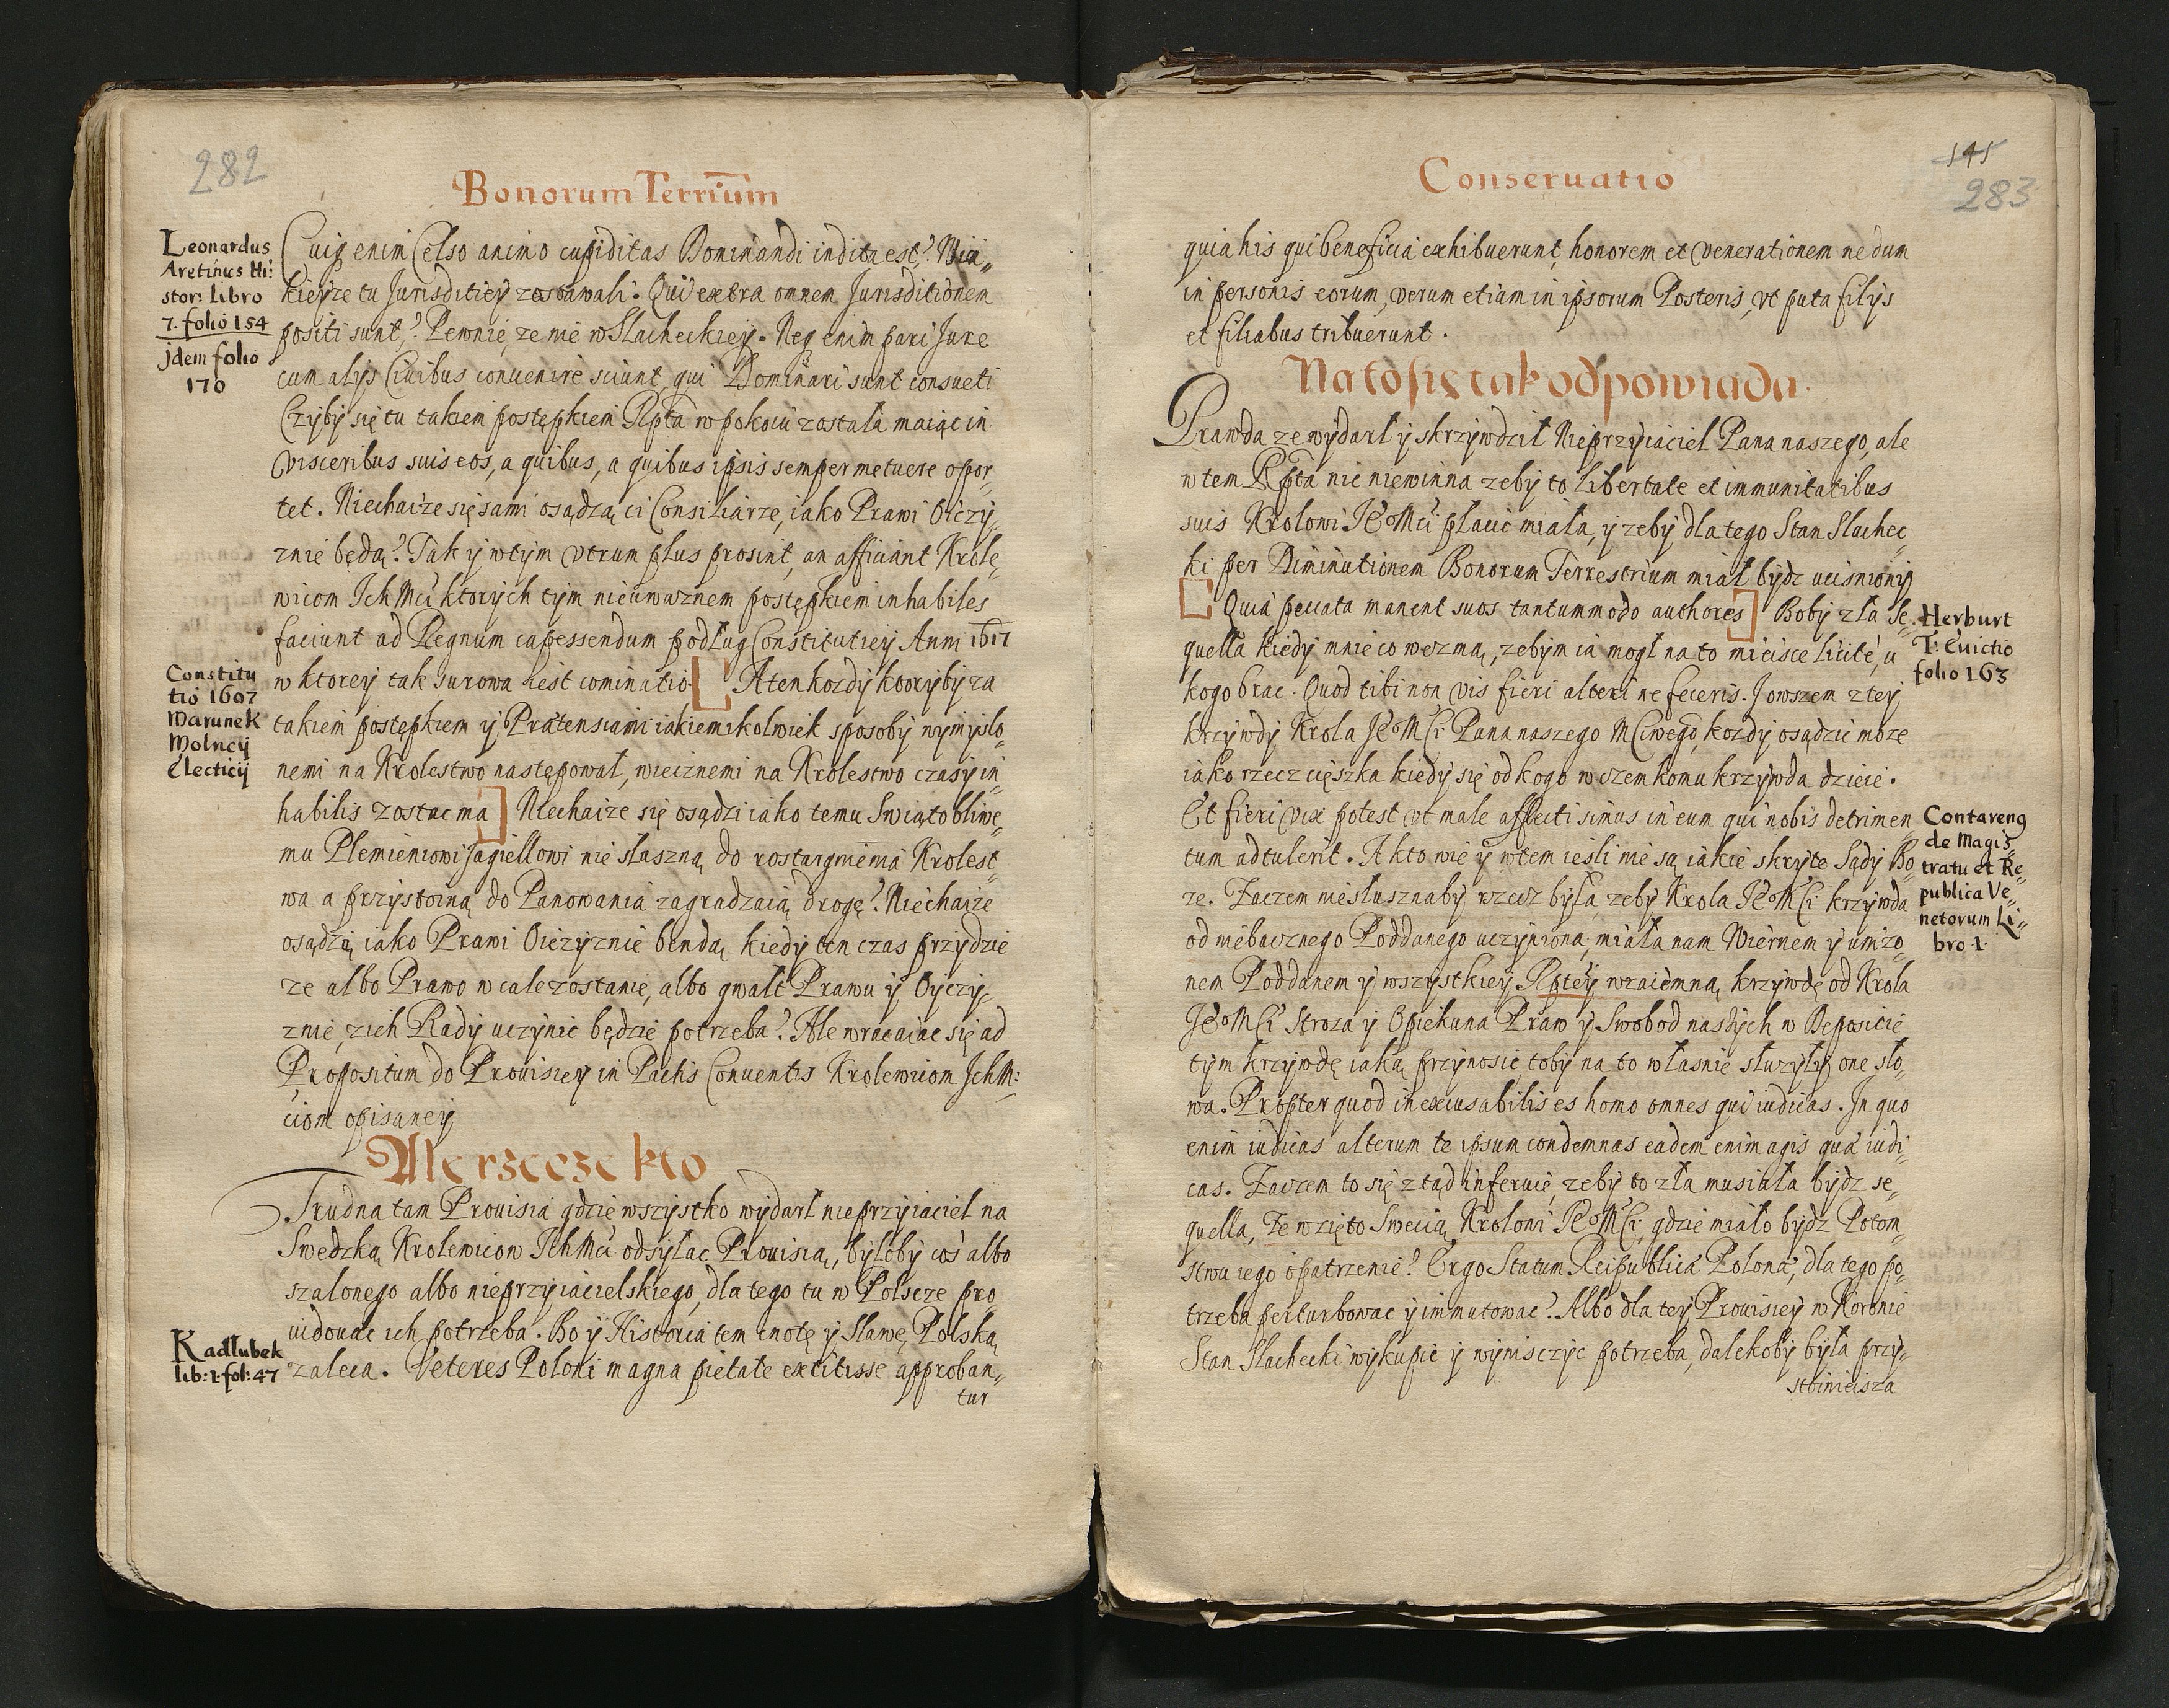 282
Bonorum Terrium
Leonardus
Aretinus Hi:
stor: libro
7. folio 154
jdem folio
170
Cuiq enim Celso animo cupiditas Dominandi indita est? Wia„
kieyze tu Jurisditiey zostawali. Qui extra omnem Jurisditionem
positi sunt? Pewnie ze nie w Slacheckiey. Neq enim pari Jure
cum alys Ciuibus conuenire sciunt qui Dominari sunt consueti
Czyby się tu takiem postępkiem Rpta w pokoiu została maiąc in
visceribus suis eos, a quibus, a quibus ipsis semper metuere opor„
tet. Niechaize się sami osądzą ci Consiliarze, iako Prawi Oiczy„
znie będą? Tak y w tym vtrum plus prosint, an afficiant Krole„
wicom Ich Mci ktorych tym nieuwaznem postępkiem inhabiles
faciunt ad Regnum capessendum podług Constitutiey Anni 1617
Constitu
tio 1607
Warunek
Wolney
Electiey
w ktorey tak surowa iest cominatio. [ A ten kozdy ktoryby za
takiem postępkiem y Prætensiami iakiemikolwiek sposoby wymyslo„
nemi na Krolestwo następował, wiecznemi na Krolestwo czasy in
habilis zostac ma ] Niechaize się osądzi iako temu Swiątobliwe„
mu Plemieniowi Jagiellowi nie słuszną do rostargniema Krolest„
wa a przystoiną do Panowania zagradzaią drogę? Niechaize
osądzą iako Prawi Oiczyznie bendą kiedy ten czas przydzie
ze albo Prawo w cale zostanie, albo gwałt Prawu y Oyczy„
znie, z ich Rady uczynic będzie potrzeba? Ale wracaiac się ad
Propositum do Prouisiey in Pactis Conuentis Krolewicom Ich M:
ciom opisaney
Ale rzecze kto
Trudna tam Prouisia gdzie wszystko wydarł nieprzyiaciel na
Swedzką Krolewicow Ich Mci odsyłac Prouisią, byłoby cos albo
szalonego albo nieprzyiacielskiego, dla tego tu w Polscze pro„
uidouac ich potrzeba. Bo y Historia tem cnotę y Sławę Polską
Kadłubek
lib: 1. fol: 47
zaleca. Veteres Poloni magna pietate extitisse approban„
tur
Conseruatio
145
283
quia his qui beneficia exhibuerunt, honorem et venerationem ne dum
in personis eorum, verum etiam in ipsorum Posteris, vt puta filys
et filiabus tribuerunt.
Na to się tak odpowiada.
Prawda ze wydarł y skrzywdził Nieprzyiaciel Pana naszego, ale
w tem Rpta nic niewinna zeby to libertate et immunitatibus
suis Krolowi Je° Mci płacic miała, y zeby dla tego Stan Slachec„
ki per Diminutionem Bonorum Terrestrium miał bydz ucisniony
[ Quia peccata manent suos tantummodo authores ] Boby zła se„
Herburt
T: Euictio
folio 163
quella kiedy mnie co wezmą, zebym ia mogł na to mieisce licite, u
kogo brac. Quod tibi non vis fieri alteri ne feceris. J owszem z tey
krzywdy Krola Je° MCi Pana naszego MCiwego, kozdy osądzic moze
iako rzecz cięszka kiedy się od kogo w czem komu krzywda dzieie.
Et fieri vix potest vt male affecti simus in eum qui nobis detrimen
Contareng
de Magis„
tratu et Re„
publica Ve„
netorum Li„
bro 1.
tum adtulerit. A kto wie y w tem iesli nie są iakie skryte Sądy Bo„
ze. Zaczem niesłusznaby rzecz była, zeby Krola Je° MCi krzywda
od niebacznego Poddanego uczyniona, miała nam Wiernem y unizo„
nem Poddanem y wszystkiey Rptey wzaiemną krzywdę od Krola
Je° MCi Stroza y Opiekuna Praw y Swobod naszych w Depositie
tym krzywdę iaką przynosic, toby na to własnie słuzyły one sło„
wa. Propter quod inexcusabilis es homo omnes qui iudicas. In quo
enim iudicas alterum te ipsum condemnas eadem enim agis quæ iudi„
cas. Zaczem to się ztąd inferuie, zeby to zła musiała bydz se„
quella, Ze wzięto Swecią Krolowi Je° MCi, gdzie miało bydz Potom„
stwu iego opatrzenie? Ergo Statum Reipublicæ Polonæ, dla tego po„
trzeba perturbowac y immutowac? Albo dla tey Prouisiey w Koronie
Stan Slachecki wykupic y wynisczyc potrzeba, dalekoby była przy„
stoinieisza